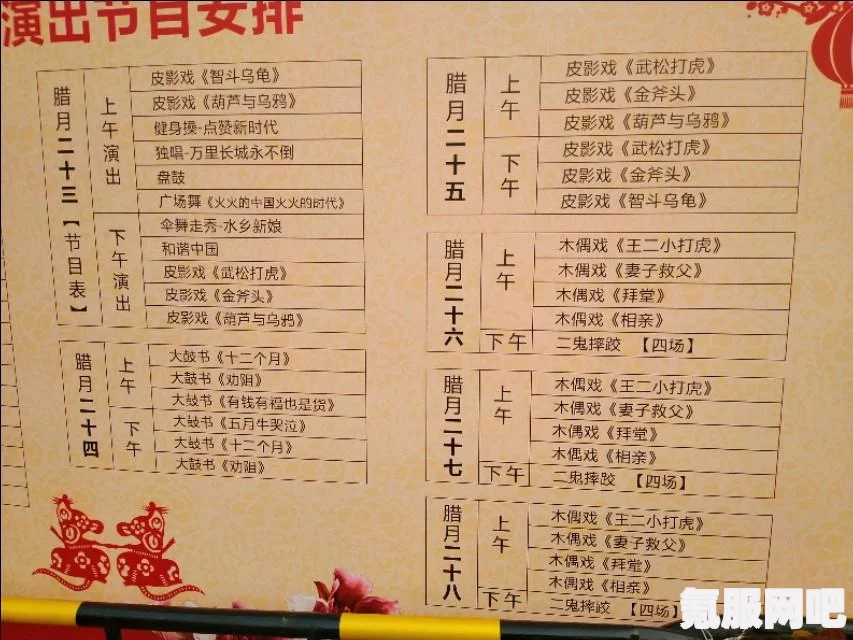 演出节目安排
腊月二十三【节目表】
上午演出
皮影戏《智斗乌龟》
皮影戏《葫芦与乌鸦》
健身操-点赞新时代
独唱-万里长城永不倒
盘鼓
广场舞《火火的中国火火的时代》
下午演出
伞舞走秀-水乡新娘
和谐中国
皮影戏《武松打虎》
皮影戏《金斧头》
皮影戏《葫芦与乌鸦》
腊月二十四
上午
大鼓书《十二个月》
大鼓书《劝阻》
大鼓书《有钱有福也是货》
下午
大鼓书《五月牛哭泣》
大鼓书《十二个月》
大鼓书《劝阻》
腊月二十五
上午
皮影戏《武松打虎》
皮影戏《金斧头》
皮影戏《葫芦与乌鸦》
下午
皮影戏《武松打虎》
皮影戏《金斧头》
皮影戏《智斗乌龟》
腊月二十六
上午
木偶戏《王二小打虎》
木偶戏《妻子救父》
木偶戏《拜堂》
木偶戏《相亲》
下午
二鬼摔跤 【四场】
腊月二十七
上午
木偶戏《王二小打虎》
木偶戏《妻子救父》
木偶戏《拜堂》
木偶戏《相亲》
下午
二鬼摔跤 【四场】
腊月二十八
上午
木偶戏《王二小打虎》
木偶戏《妻子救父》
木偶戏《拜堂》
木偶戏《相亲》
下午
二鬼摔跤 【四场】
氪服网吧